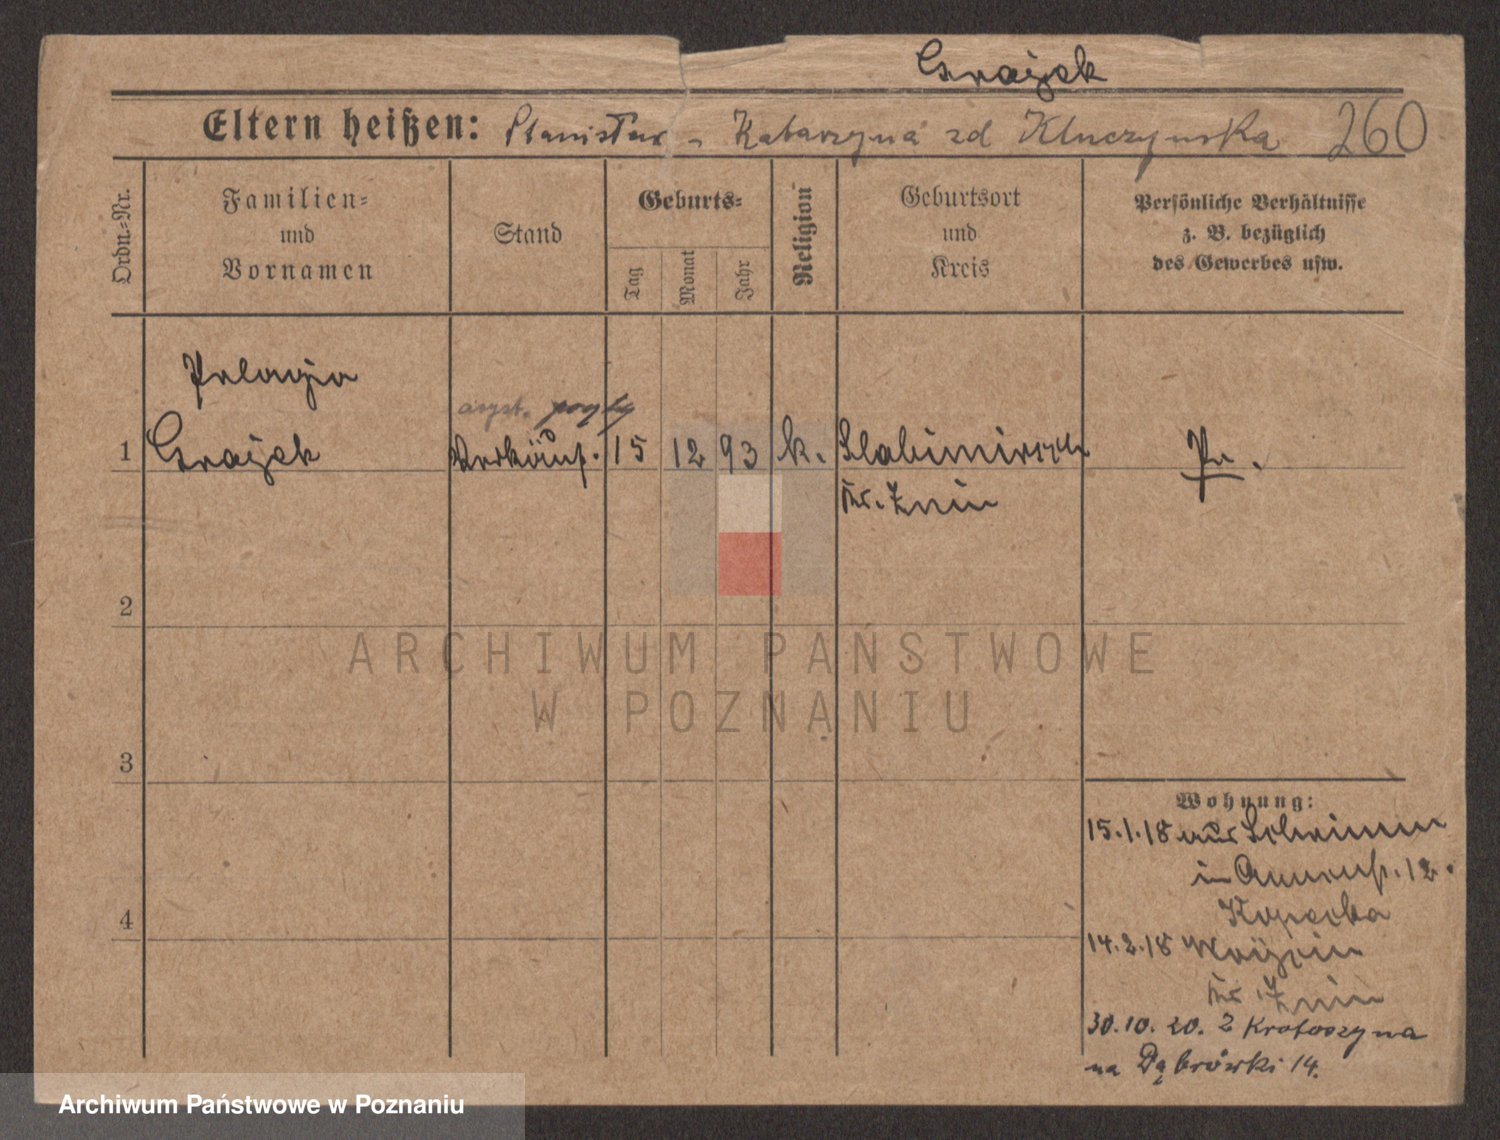 Grajek
Eltern heißen: Stanisław - Katarzyna zd Kluczyńska 260
Ordn.-Nr.
Familien-
und
Vornamen
Stand
Geburts-
Tag
Monat
Jahr
Religion
Geburtsort
und
Kreis
Persönliche Verhältnisse
z. B. bezüglich
des Gewerbes usw.
Pelagia
asyst.
1 Grajek Verkäuf. 15 12 93 k. Pr.
Kr. Znin
2
ARCHIWUM PAŃSTWOWE
W POZNANIU
3
Wohnung:
15.1.18 aus Schrimm
in Annenst. 12.
Kopecka
4
14.2.18
Kr. Znin
30.10.20. z Krotoszyna
na Dąbrówki 14.
Archiwum Państwowe w Poznaniu